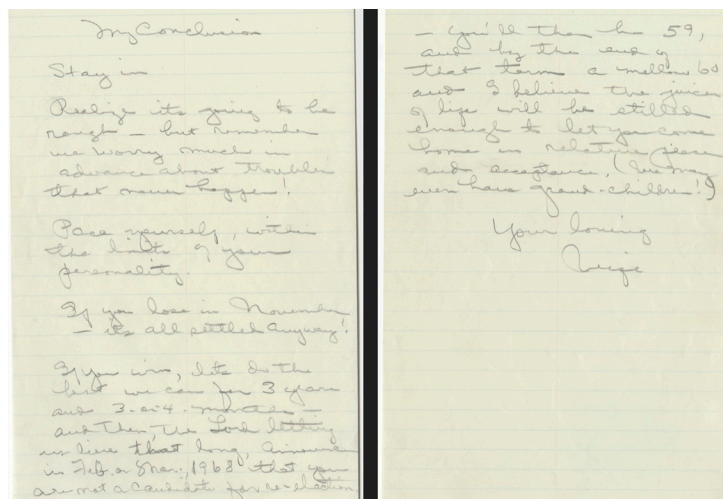 My Conclusion
Stay in
Realize it's going to be
rough - but remember
we worry much in
advance about troubles
that never happen!
Pace yourself, within
the limits of your
personality.
If you lose in November
- it's all settled anyway!
If you win, let's do the
best we can for 3 years
and 3 or 4 months -
and then, the Lord letting
us live that long, announce
in Feb. or Mar., 1968 that you
are not a candidate for re-election
- You'll then be 59,
and by the end of
that term a mellow 60
and I believe the juices
of life will be stilled
enough to let you come
home in relative peace
and acceptance. (We may
even have grand-children!)
Your loving
wife